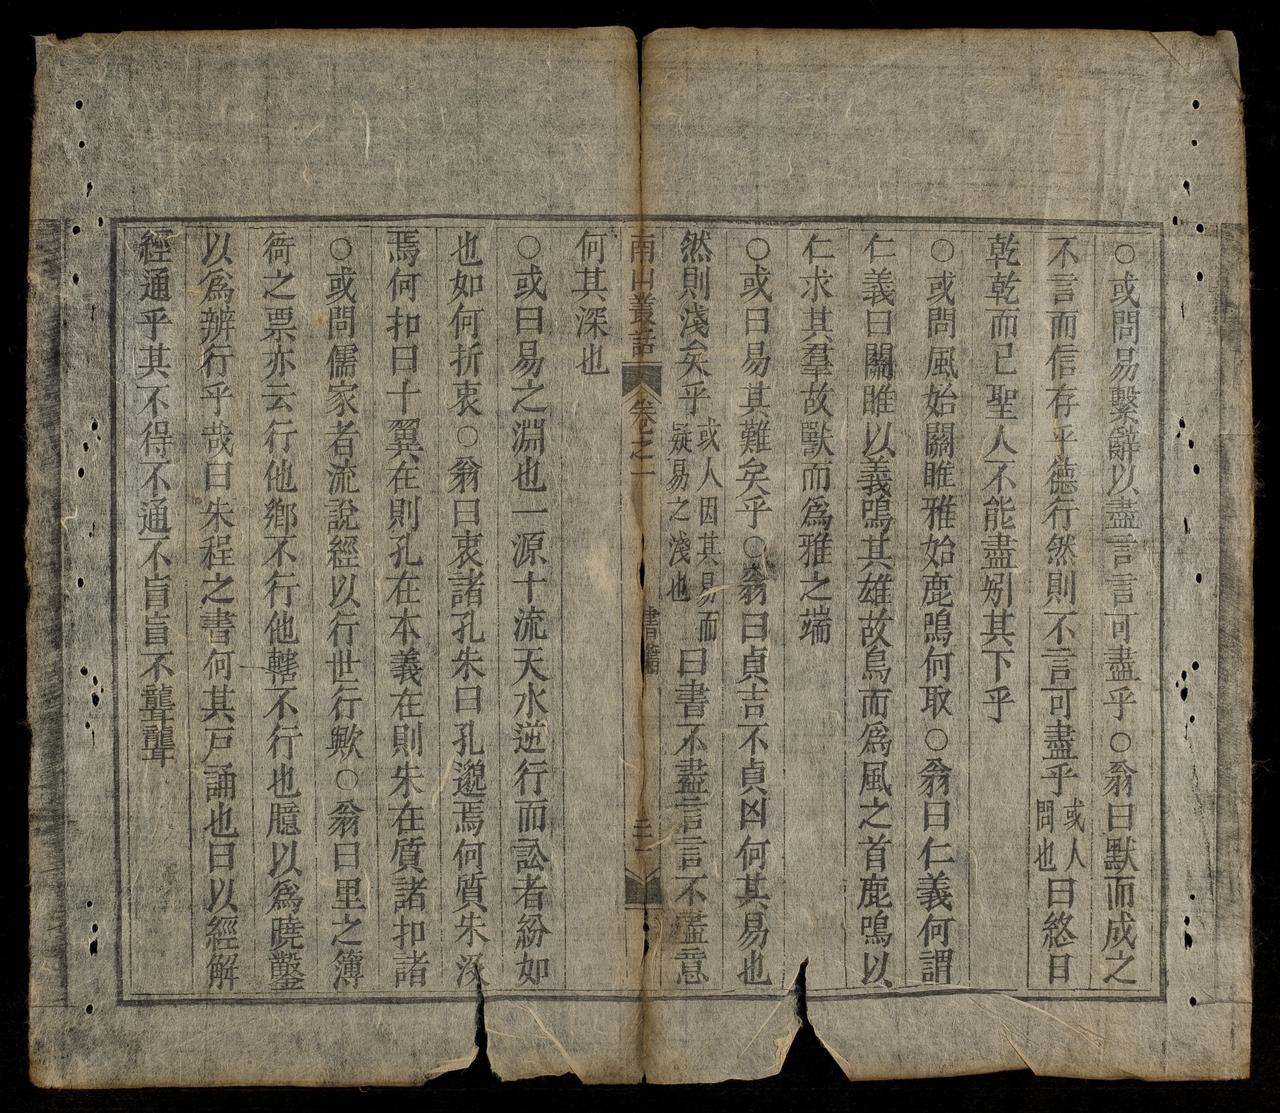 ○或問易繫辭以盡言言可盡乎○翁曰默而成之
不言而信存乎德行然則不言可盡乎或人問也曰終日
乾乾而已聖人不能盡矧其下乎
○或問風始關雎雅始鹿鳴何取○翁曰仁義何謂
仁義曰關雎以義鳴其雄故鳥而爲風之首鹿鳴以
仁求其羣故獸而爲雅之端
○或曰易其難矣乎○翁曰貞吉不貞凶何其易也
然則淺矣乎或人因其易而疑易之淺也曰書不盡言言不盡意
南山叢話 卷之二 書籍 三
何其深也
○或曰易之淵也一源十流天水逆行而訟者紛如
也如何折衷○翁曰衷諸孔朱曰孔邈焉何質朱深
焉何扣曰十翼在則孔在本義在則朱在質諸扣諸
○或問儒家者流說經以行世行歟○翁曰里之簿
衙之票亦云行他鄉不行他轄不行也臆以爲曉鑿
以爲辨行乎哉曰朱程之書何其戶誦也曰以經解
經通乎其不得不通不盲盲不聾聾